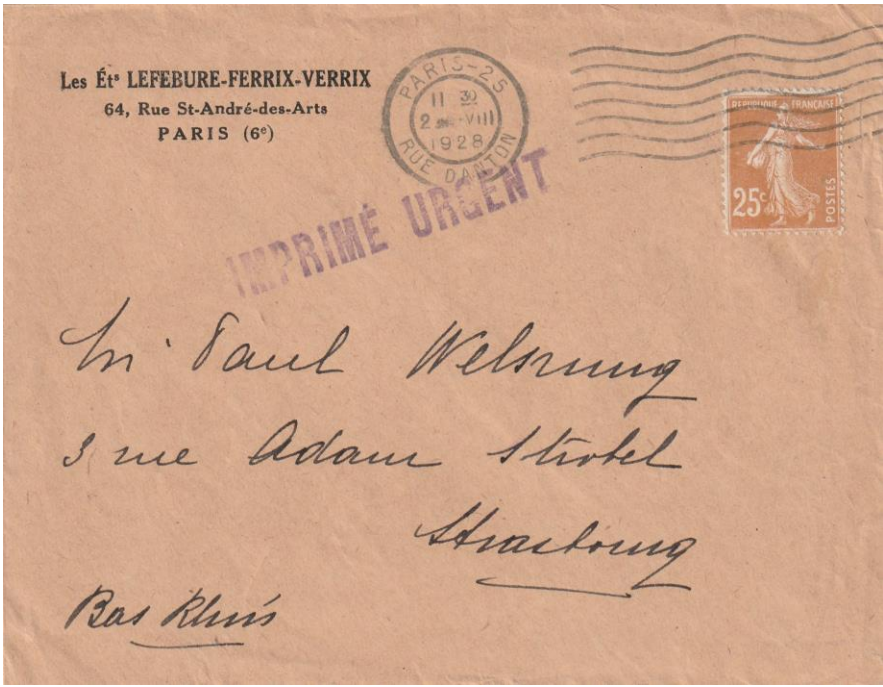 Les Éts LEFEBURE-FERRIX-VERRIX
64, Rue St-André-des-Arts
PARIS (6e)
PARIS-25
11 30
2 VIII
1928
RUE DANTON
REPUBLIQUE FRANÇAISE
25c
POSTES
IMPRIMÉ URGENT
Mr Paul
3 rue Adam Strobel
Strasbourg
Bas Rhin